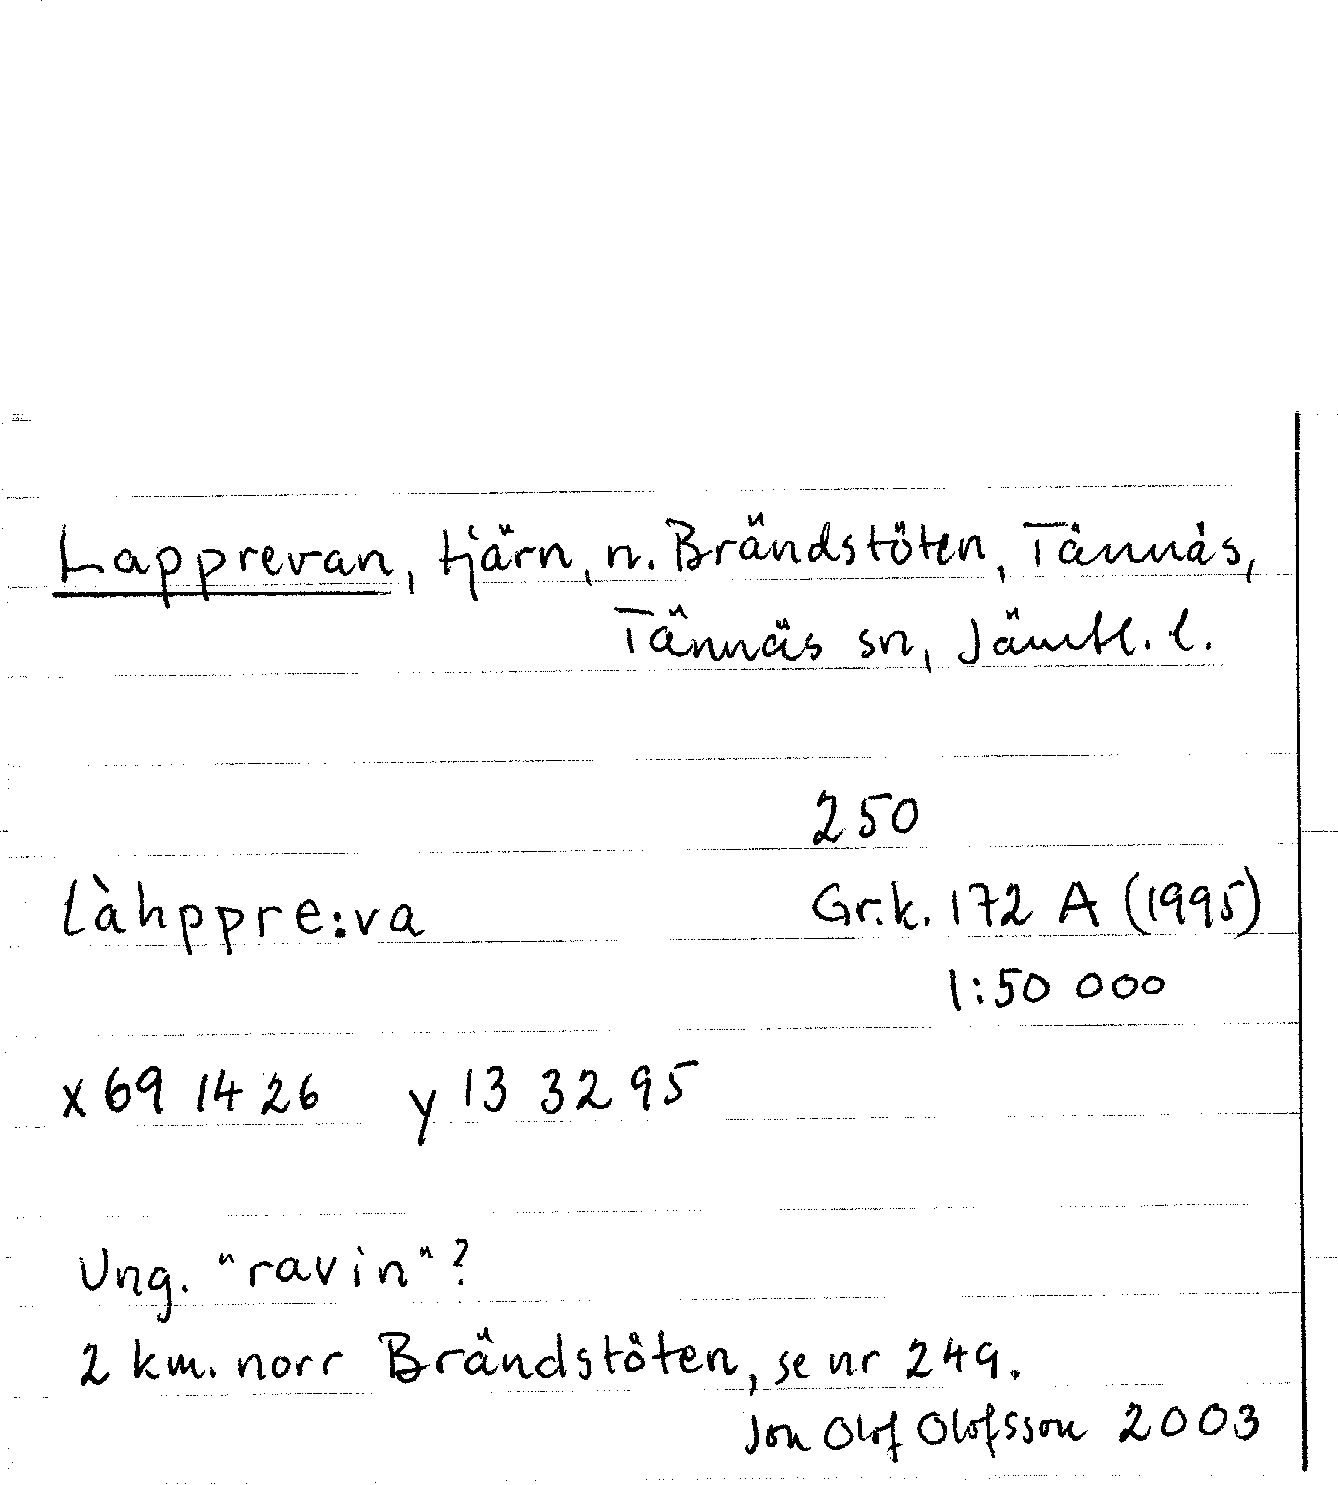 Lapprevan, tjärn, n. Brändstöten, Tännäs,
Tännäs sn, Jämtl. l.
250
làhppre:va Gr.k. 172 A (1995)
1:50 000
x 69 14 26 y 13 32 95
Ung. "ravin"?
2 km. norr Brändstöten, se nr 249.
Jon Olof Olofsson 2003